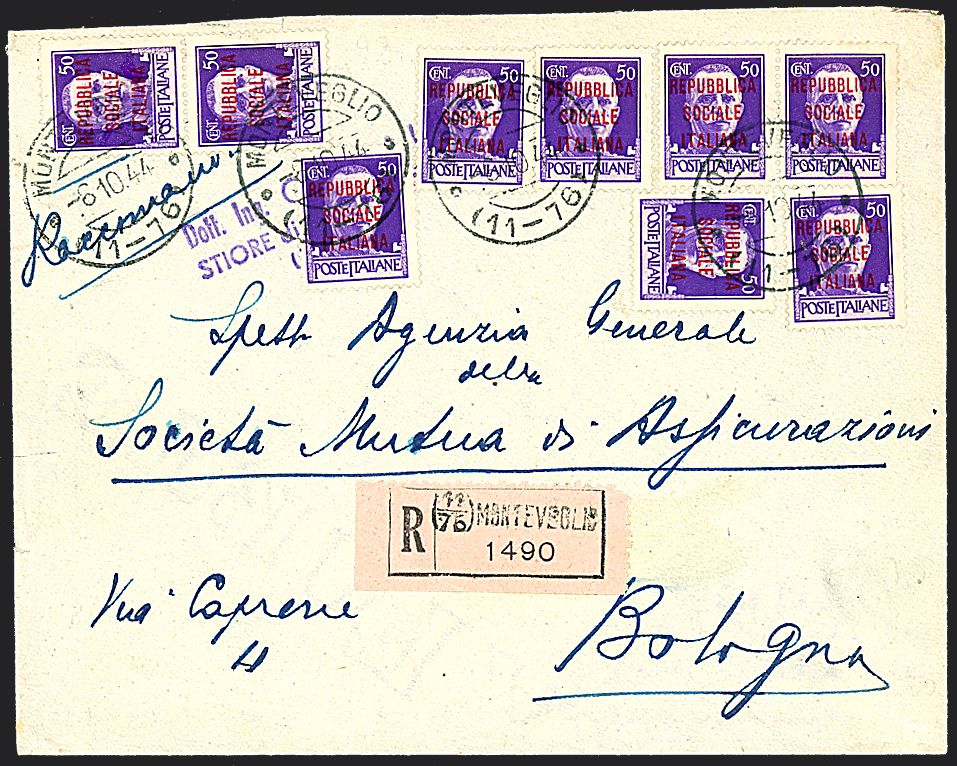 50
CENT.
REPUBBLICA
SOCIALE
ITALIANA
POSTE ITALIANE
50
CENT.
REPUBBLICA
SOCIALE
ITALIANA
POSTE ITALIANE
CENT. 50
REPUBBLICA
SOCIALE
ITALIANA
POSTE ITALIANE
CENT. 50
REPUBBLICA
SOCIALE
ITALIANA
POSTE ITALIANE
CENT. 50
REPUBBLICA
SOCIALE
ITALIANA
POSTE ITALIANE
CENT. 50
REPUBBLICA
SOCIALE
ITALIANA
POSTE ITALIANE
-6.10.44
(11-76)
Dott. Ing.
STIORE
50
REPUBBLICA
SOCIALE
ITALIANA
POSTE ITALIANE
(11-76)
CENT. 50
REPUBBLICA
SOCIALE
ITALIANA
POSTE ITALIANE
50
REPUBBLICA
SOCIALE
ITALIANA
POSTE ITALIANE
Spett Agenzia Generale
della
Società Mutua di Assicurazioni
R (11/76) MONTEVEGLIO
1490
Via Caprarie
4
Bologna